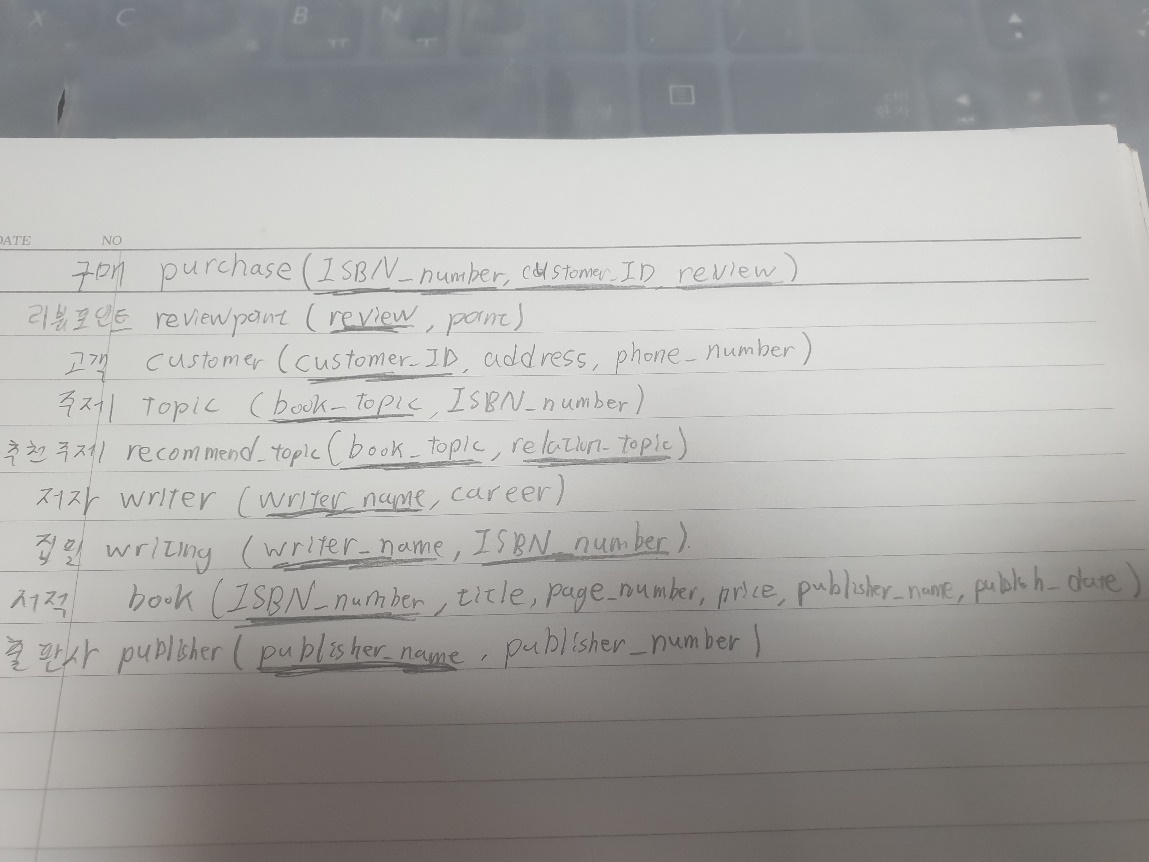 DATE NO
구매 purchase (ISBN_number, customer_ID review)
리뷰포인트 reviewpoint (review, point)
고객 customer (customer_ID, address, phone_number)
주제 topic (book_topic, ISBN_number)
추천주제 recommend_topic (book_topic, relation_topic)
저자 writer (writer_name, career)
집필 writing (writer_name, ISBN_number).
서적 book (ISBN_number, title, page_number, price, publisher_name, publish_date)
출판사 publisher (publisher_name, publisher_number)